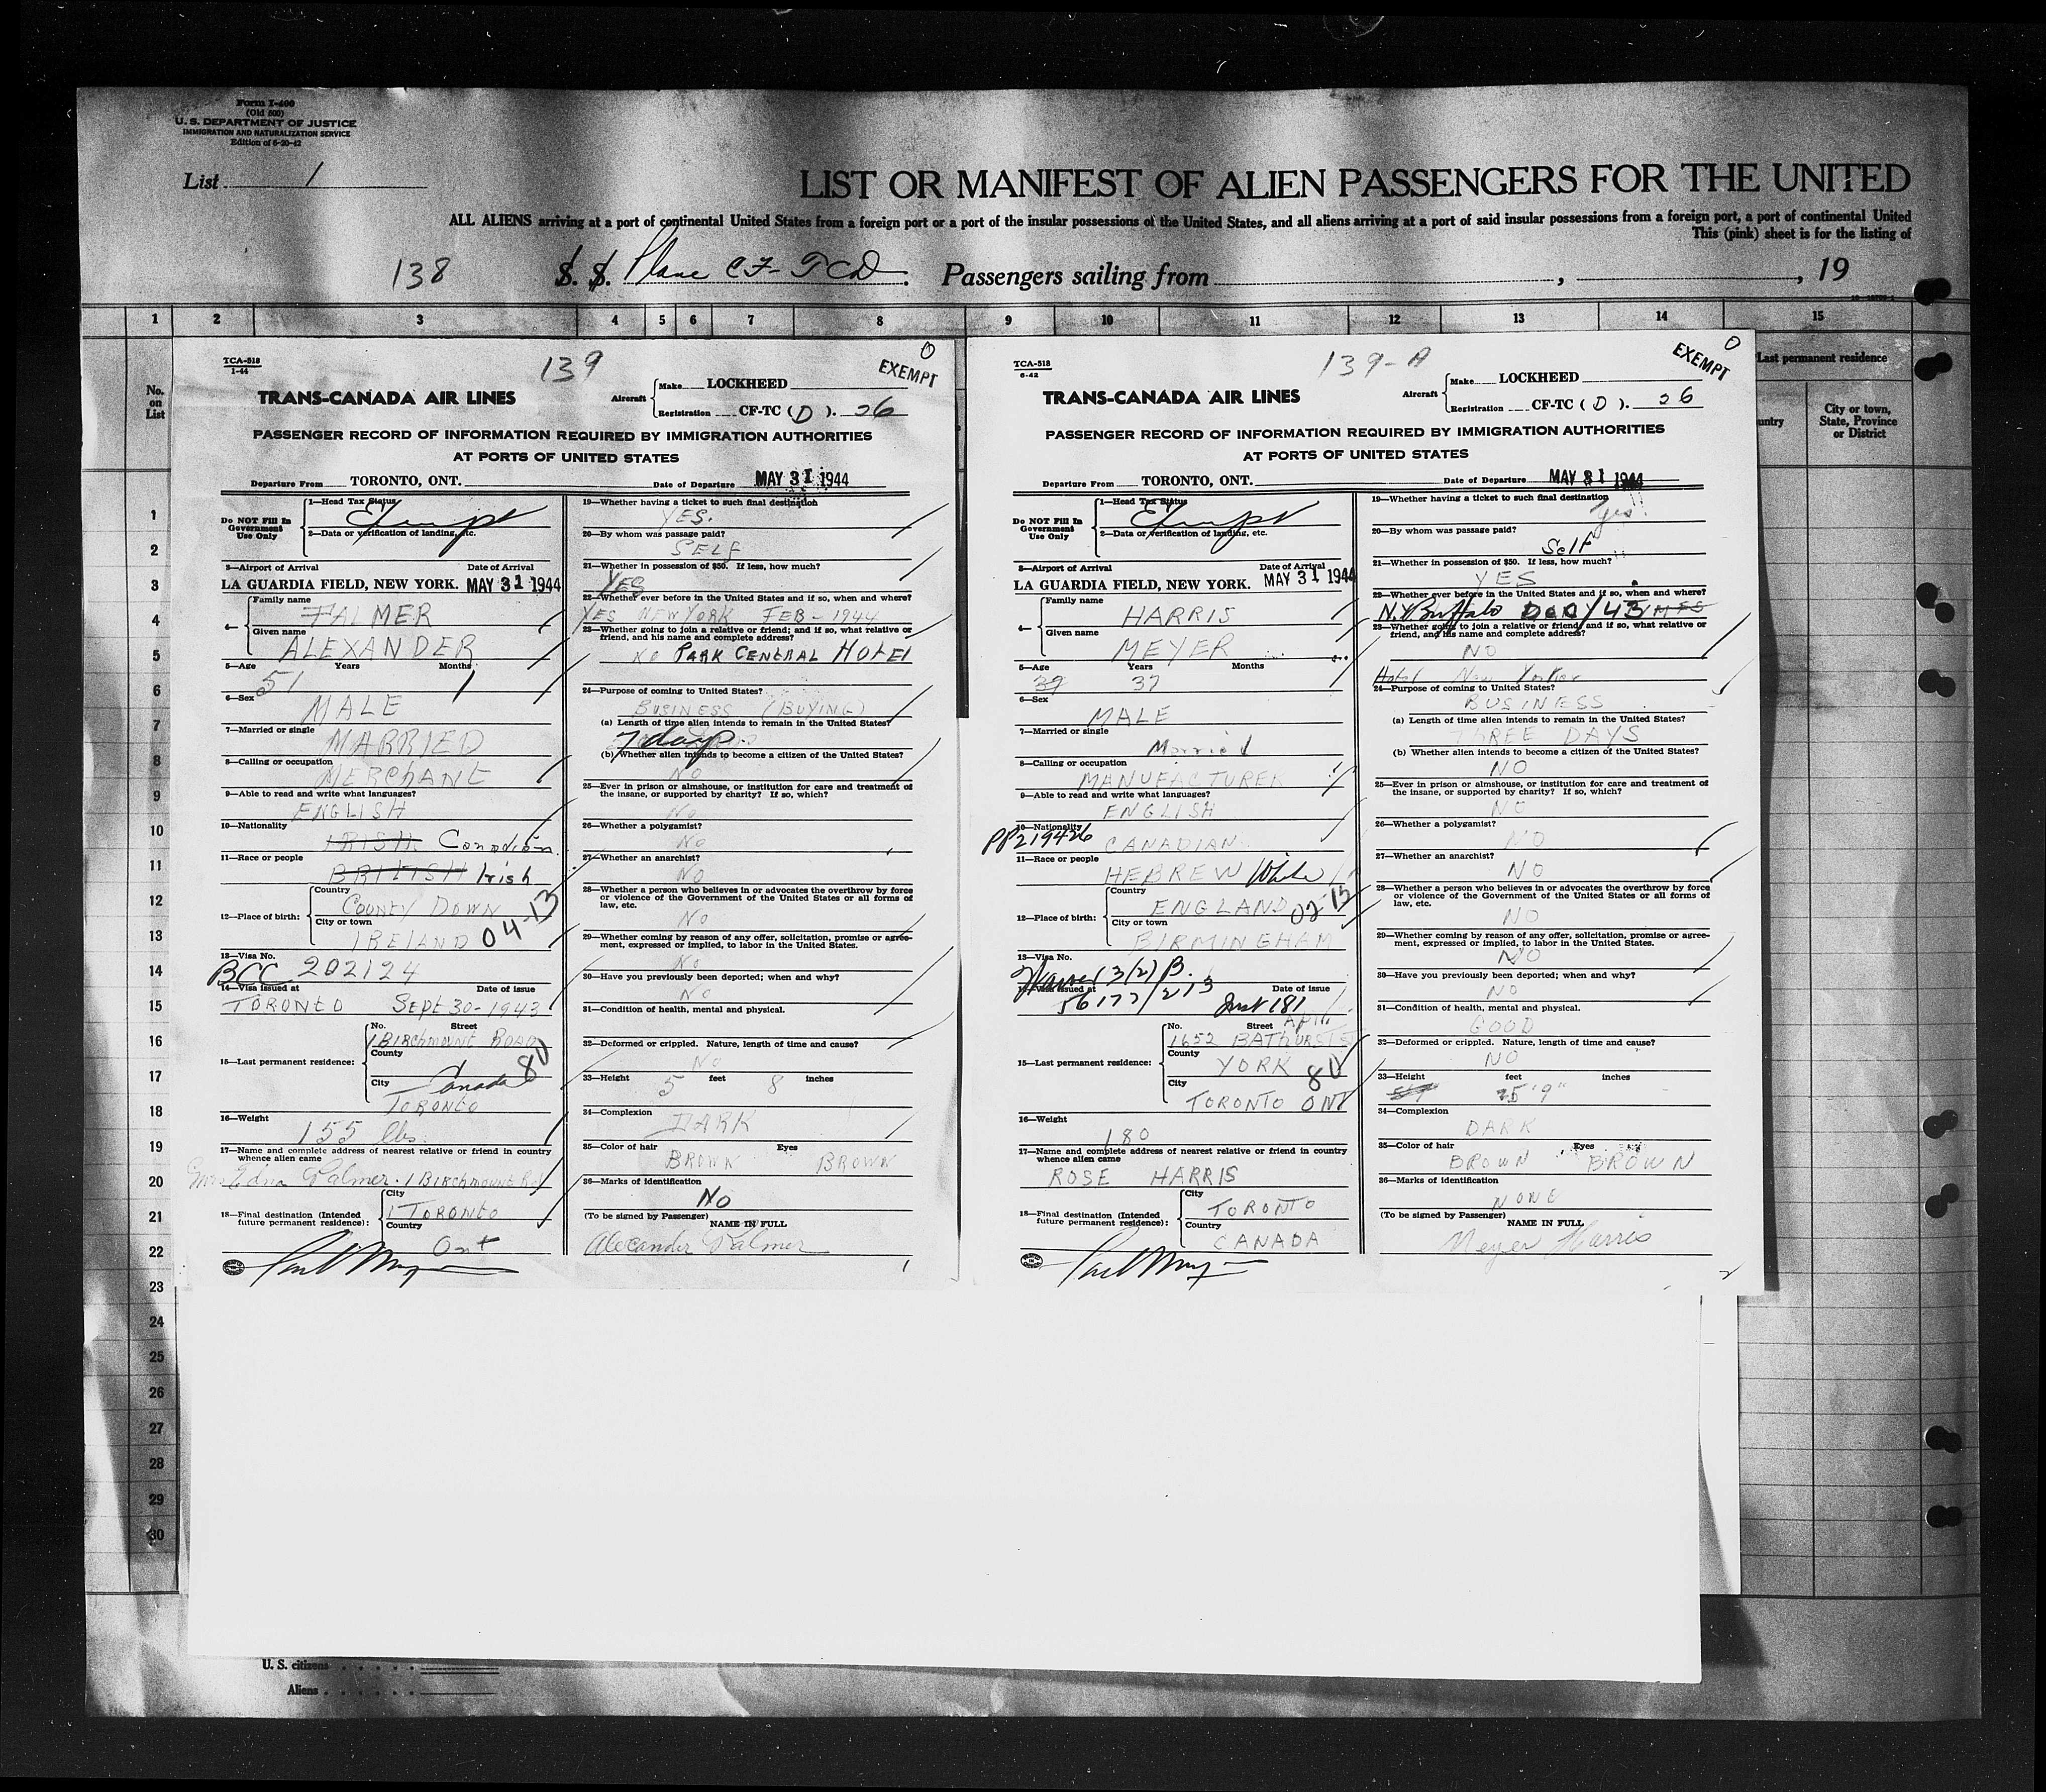 Form I-400
(Old 500)
U. S. DEPARTMENT OF JUSTICE
IMMIGRATION AND NATURALIZATION SERVICE
Edition of 6-20-42
List 1
LIST OR MANIFEST OF ALIEN PASSENGERS FOR THE UNITED
ALL ALIENS arriving at a port of continental United States from a foreign port or a port of the insular possessions of the United States, and all aliens arriving at a port of said insular possessions from a foreign port, a port of continental United
This (pink) sheet is for the listing of
138 S. S. Plane CF-TCD. Passengers sailing from , , 19
1 2 3 4 5 6 7 8 9 10 11 12 13 14 15
No. on List
Last permanent residence
untry
City or town, State, Province or District
1
2
3
4
5
6
7
8
9
10
11
12
13
14
15
16
17
18
19
20
21
22
23
24
25
26
27
28
29
30
TCA-518
1-44
139
EXEMPT
0
TRANS-CANADA AIR LINES
Aircraft
Make LOCKHEED
Registration CF-TC (D). 26
PASSENGER RECORD OF INFORMATION REQUIRED BY IMMIGRATION AUTHORITIES
AT PORTS OF UNITED STATES
Departure From TORONTO, ONT. Date of Departure MAY 31 1944
Do NOT Fill In Government Use Only
1—Head Tax Status
Exempt
2—Data or verification of landing, etc.
3—Airport of Arrival Date of Arrival
LA GUARDIA FIELD, NEW YORK. MAY 31 1944
4—
Family name
PALMER
Given name
ALEXANDER
5—Age Years Months
51 1
6—Sex
MALE
7—Married or single
MARRIED
8—Calling or occupation
MERCHANT
9—Able to read and write what languages?
ENGLISH
10—Nationality
IRISH Canadian
11—Race or people
BRITISH Irish
12—Place of birth:
Country
COUNTY DOWN
City or town
IRELAND 04-13
13—Visa No.
BCC 202124
14—Visa issued at Date of issue
TORONTO SEPT 30-1943
15—Last permanent residence:
No. Street
1 BIRCHMOUNT ROAD
County
Canada 80
City
TORONTO
16—Weight
155 lbs.
17—Name and complete address of nearest relative or friend in country
whence alien came
Mrs Edna Palmer. 1 BIRCHMOUNT Rd
18—Final destination (Intended future permanent residence):
City
TORONTO
Country
Ont
19—Whether having a ticket to such final destination
YES.
20—By whom was passage paid?
SELF
21—Whether in possession of $50. If less, how much?
YES
22—Whether ever before in the United States and if so, when and where?
YES NEW YORK FEB-1944
23—Whether going to join a relative or friend; and if so, what relative or
friend, and his name and complete address?
NO PARK CENTRAL HOTEl
24—Purpose of coming to United States?
BUSINESS (BUYING)
(a) Length of time alien intends to remain in the United States?
7 days.
(b) Whether alien intends to become a citizen of the United States?
NO
25—Ever in prison or almshouse, or institution for care and treatment of
the insane, or supported by charity? If so, which?
No
26—Whether a polygamist?
NO
27—Whether an anarchist?
NO
28—Whether a person who believes in or advocates the overthrow by force
or violence of the Government of the United States or all forms of
law, etc.
NO
29—Whether coming by reason of any offer, solicitation, promise or agree-
ment, expressed or implied, to labor in the United States.
No
30—Have you previously been deported; when and why?
NO
31—Condition of health, mental and physical.
32—Deformed or crippled. Nature, length of time and cause?
No
33—Height feet inches
5 8
34—Complexion
DARK
35—Color of hair Eyes
BROWN BROWN
36—Marks of identification
NO
(To be signed by Passenger)
NAME IN FULL
Alexander Palmer
1
TCA-518
6-42
139-A
EXEMPT
0
TRANS-CANADA AIR LINES
Aircraft
Make LOCKHEED
Registration CF-TC (D). 26
PASSENGER RECORD OF INFORMATION REQUIRED BY IMMIGRATION AUTHORITIES
AT PORTS OF UNITED STATES
Departure From TORONTO, ONT. Date of Departure MAY 31 1944
Do NOT Fill In Government Use Only
1—Head Tax Status
Exempt
2—Data or verification of landing, etc.
3—Airport of Arrival Date of Arrival
LA GUARDIA FIELD, NEW YORK. MAY 31 1944
4—
Family name
HARRIS
Given name
MEYER
5—Age Years Months
39 37
6—Sex
MALE
7—Married or single
Married
8—Calling or occupation
MANUFACTURER
9—Able to read and write what languages?
ENGLISH
10—Nationality
PP219426 CANADIAN
11—Race or people
HEBREW White
12—Place of birth:
Country
ENGLAND 02-12
City or town
BIRMINGHAM
13—Visa No.
Waiver 3(2) B.
14—Visa issued at Date of issue
56177/213
15—Last permanent residence:
No. Street
1652 BATHURST
County
YORK 80
City
TORONTO ONT
16—Weight
180
17—Name and complete address of nearest relative or friend in country
whence alien came
ROSE HARRIS
18—Final destination (Intended future permanent residence):
City
TORONTO
Country
CANADA
19—Whether having a ticket to such final destination
Yes
20—By whom was passage paid?
Self
21—Whether in possession of $50. If less, how much?
YES
22—Whether ever before in the United States and if so, when and where?
N.Y. Buffalo DEC/43
23—Whether going to join a relative or friend; and if so, what relative or
friend, and his name and complete address?
NO
Hotel New Yorker
24—Purpose of coming to United States?
BUSINESS
(a) Length of time alien intends to remain in the United States?
THREE DAYS
(b) Whether alien intends to become a citizen of the United States?
NO
25—Ever in prison or almshouse, or institution for care and treatment of
the insane, or supported by charity? If so, which?
NO
26—Whether a polygamist?
NO
27—Whether an anarchist?
NO
28—Whether a person who believes in or advocates the overthrow by force
or violence of the Government of the United States or all forms of
law, etc.
NO
29—Whether coming by reason of any offer, solicitation, promise or agree-
ment, expressed or implied, to labor in the United States.
NO
30—Have you previously been deported; when and why?
NO
31—Condition of health, mental and physical.
GOOD
32—Deformed or crippled. Nature, length of time and cause?
NO
33—Height feet inches
5'9"
34—Complexion
DARK
35—Color of hair Eyes
BROWN BROWN
36—Marks of identification
NONE
(To be signed by Passenger)
NAME IN FULL
Meyer Harris
2
U. S. citizens
Aliens